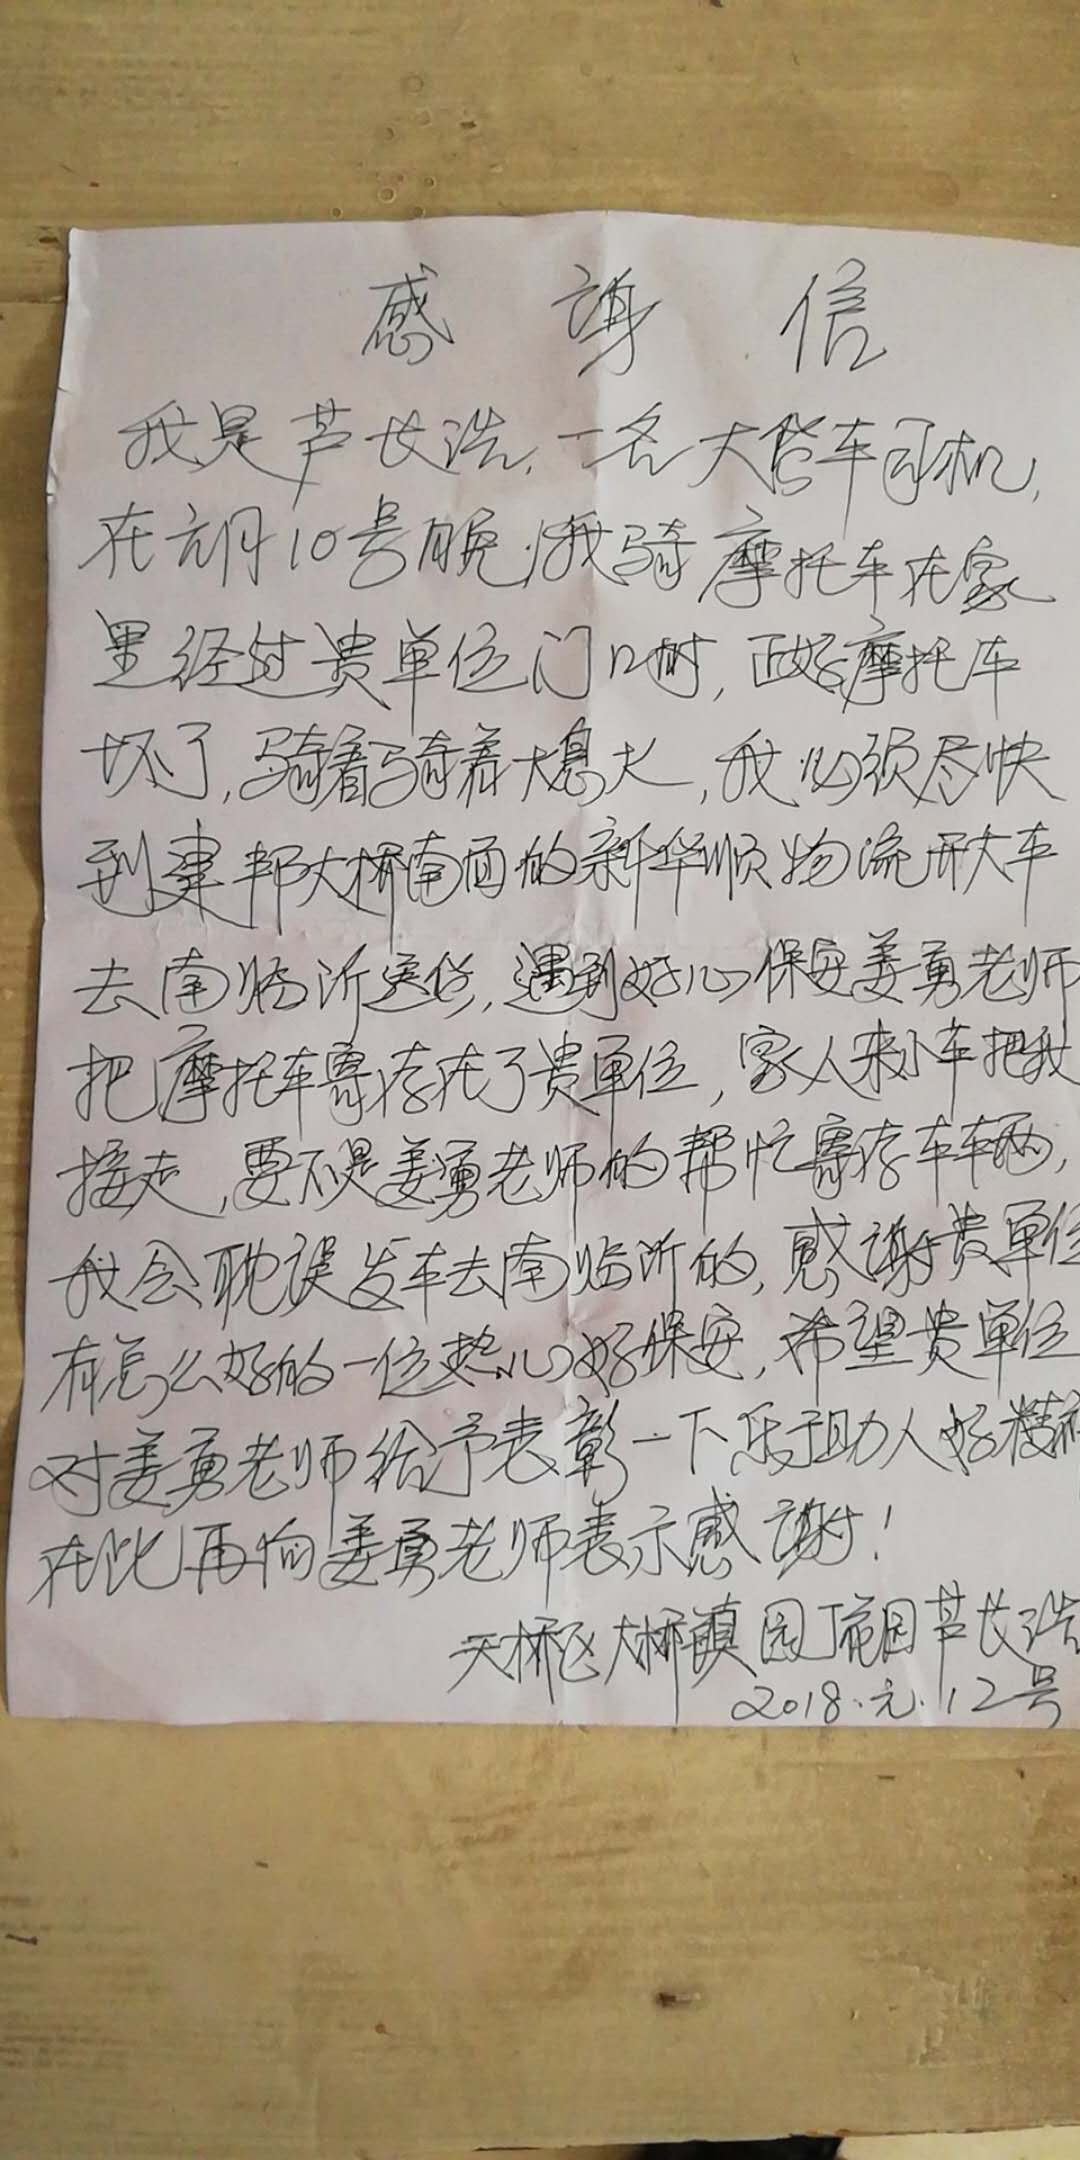 感谢信
我是芦长浩,一名大货车司机,
在元月10号晚,我骑摩托车在家
里经过贵单位门口时,正好摩托车
坏了,骑着骑着大熄火,我必须尽快
到建邦大桥南面的新华顺物流开大车
去南临沂送货,遇到好心保安姜勇老师
把摩托车寄存在了贵单位,家人来小车把我
接走,要不是姜勇老师的帮忙寄存车辆,
我会耽误发车去南临沂的,感谢贵单位
有怎么好的一位热心好保安,希望贵单位
对姜勇老师给予表彰一下乐于助人好精神
在此再向姜勇老师表示感谢!
天桥区大桥镇 芦长浩
2018.元.12号